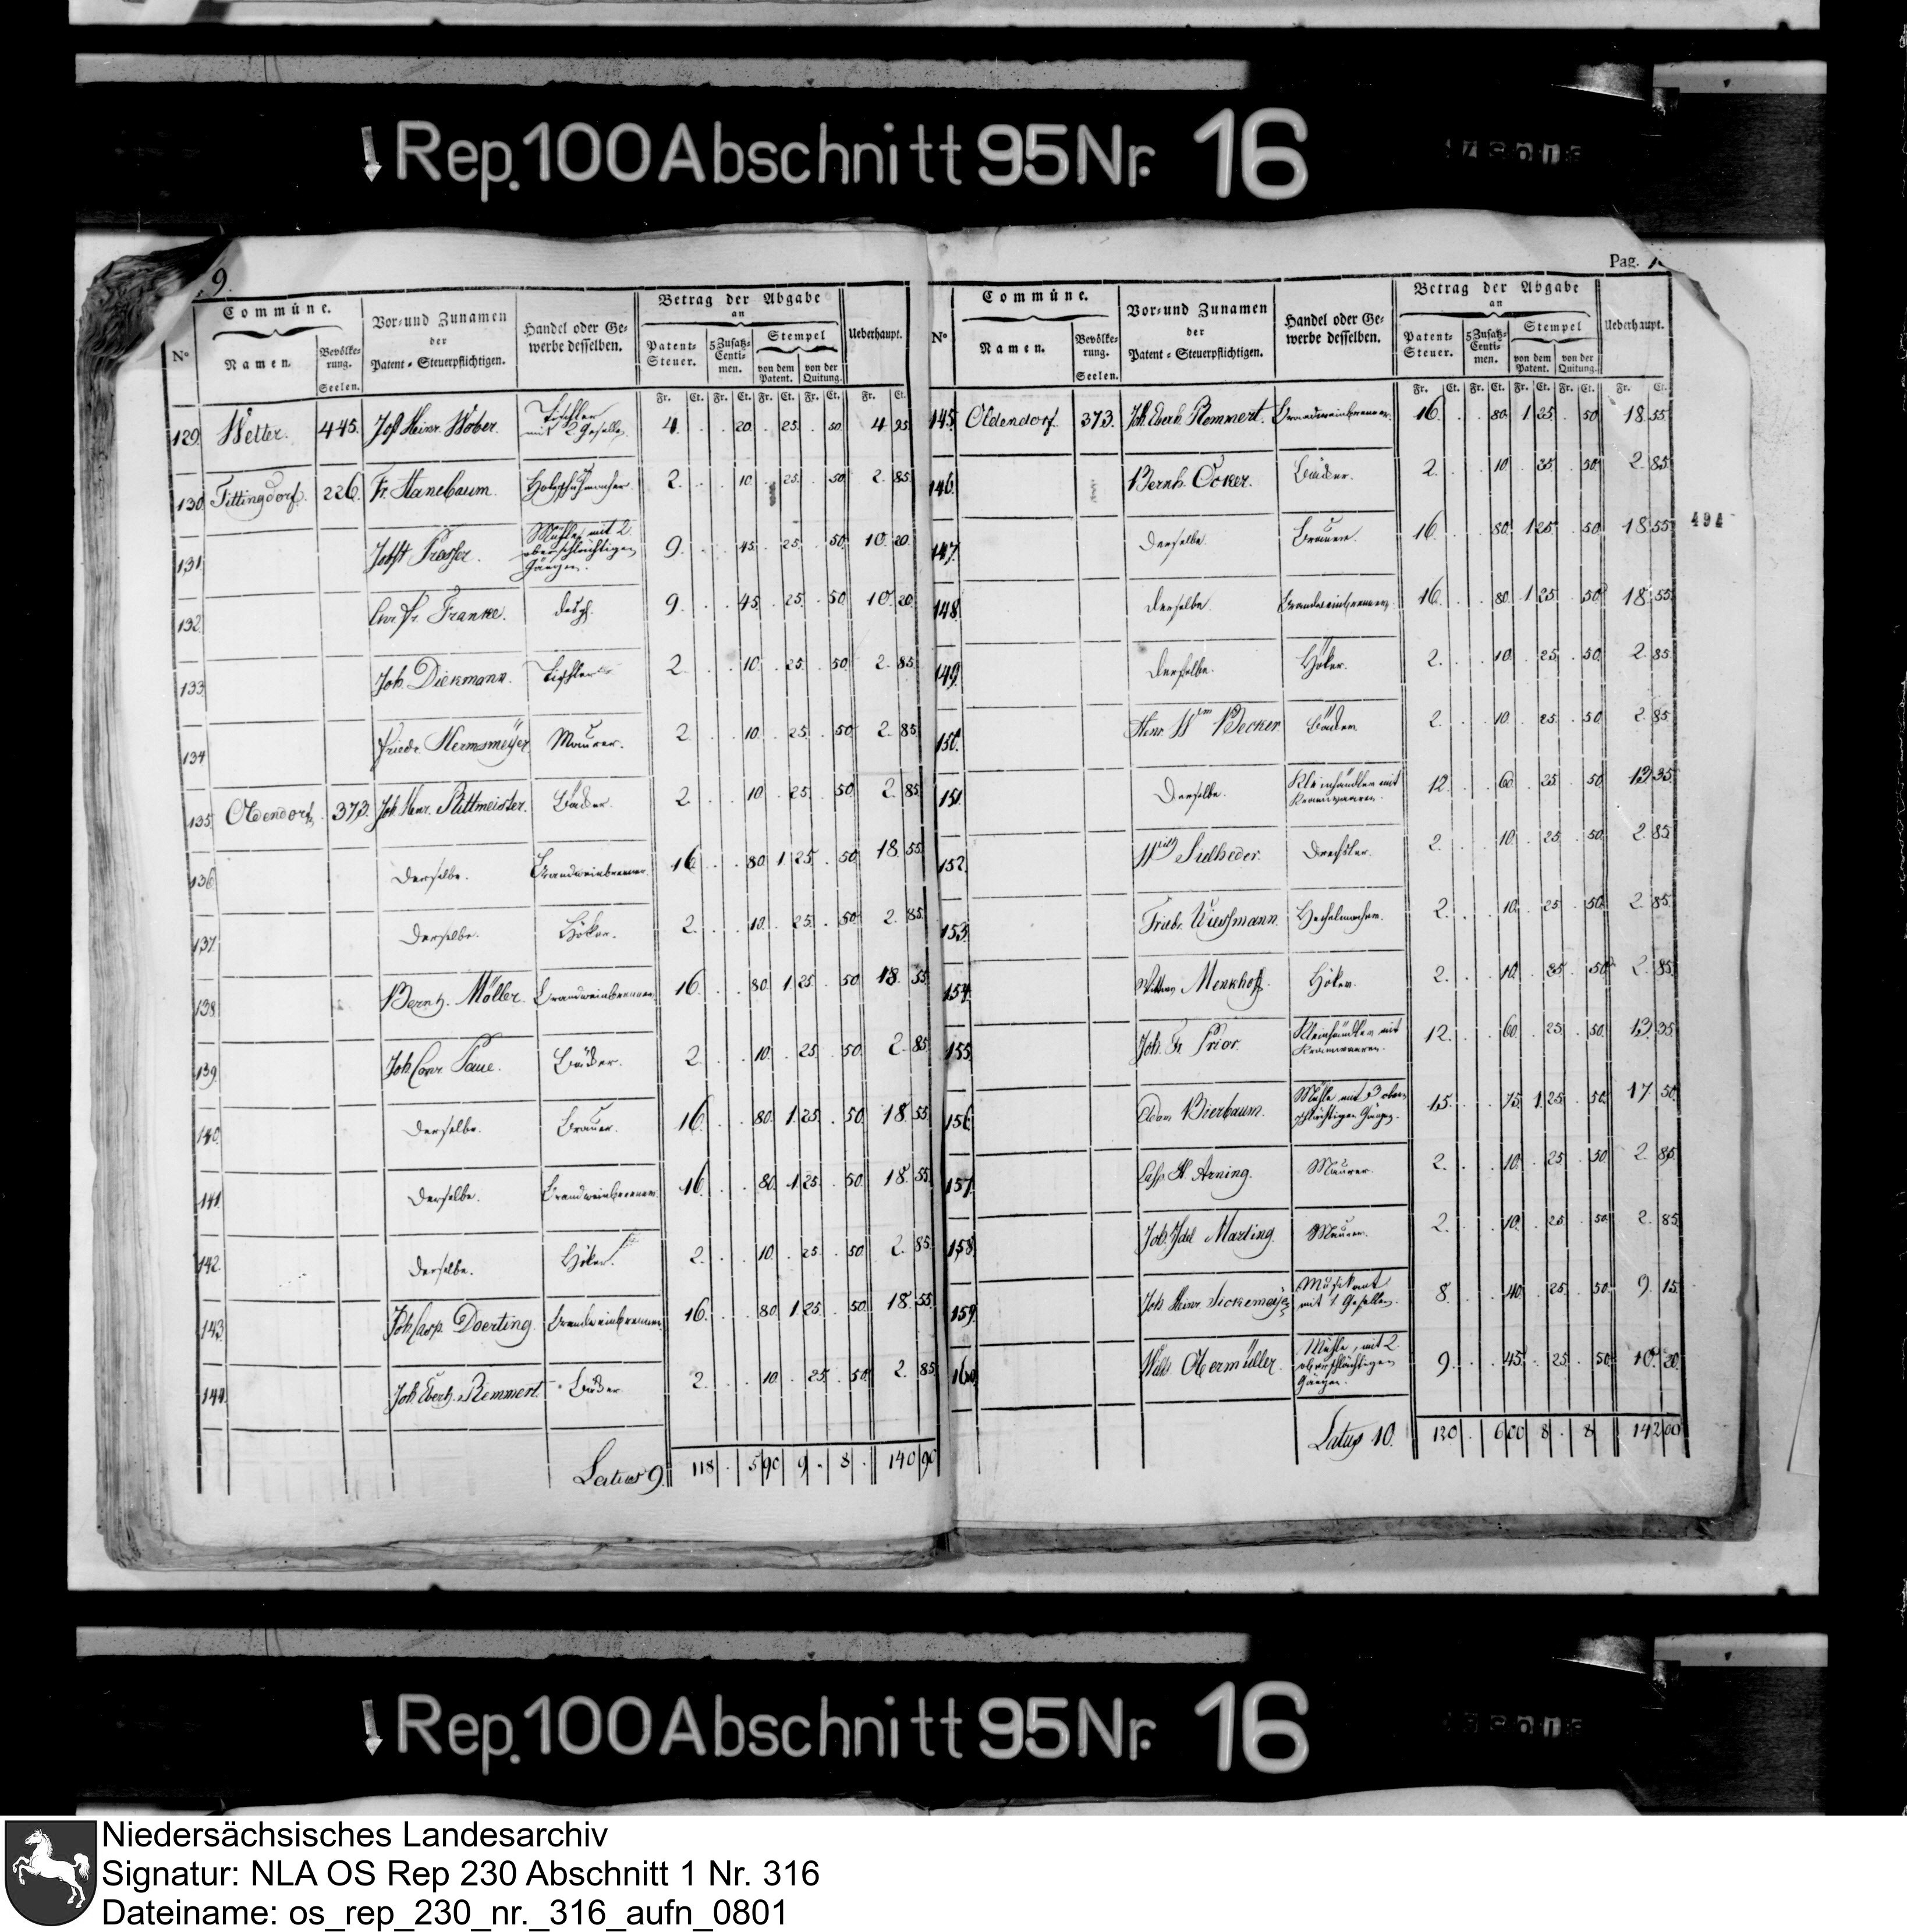 ↓Rep.100Abschnitt95Nr. 16
9.
Pag.
494
N° Commüne. Vor- und Zunamen der Patent-Steuerpflichtigen. Handel oder Gewerbe desselben. Betrag der Abgabe an Ueberhaupt.
Namen. Bevölkerung. Seelen. Patent-Steuer. 5 Zusatz-Centimen. Stempel von dem Patent. von der Quitung.
Fr. Ct. Fr. Ct. Fr. Ct. Fr. Ct. Fr. Ct.
129 Wetter. 445. Jost Heinr. Wober. Tischler mit 2 Gesellen 4. . . 20 . 25 . 50 4 95
130 Tittingdorf. 226. Fr. Hanebaum. Holzschuhmacher. 2. . . 10. . 25. . 50 2 85
131 Jobst Presser. Mühle mit 2 oberschlächtigen Gängen. 9. . . 45. . 25. . 50 10. 20
132 Franke. desgl. 9. . . 45. . 25. . 50 10. 20
133 Joh. Diekmann. Tischler 2. . . 10 . 25 . 50 2. 85
134 Friedr. Hermsmeÿer Maurer. 2 . . 10. . 25. . 50. 2. 85
135 Oldendorf. 373. Joh. Henr. Rittmeister. Bäcker. 2. . . 10 . 25. . 50 2. 85
136 Derselbe. Brandweinbrenner. 16. . . 80. 1. 25. . 50 18. 55
137. Derselbe. Höker. 2. . . 10. . 25. . 50 2. 85
138 Bernh. Möller. Brandweinbrenner. 16. . . 80. 1. 25. . 50 18. 55
139. Joh. Conr. Bäcker. 2. . . 10. . 25. . 50. 2. 85
140. Derselbe. Brauer. 16. . . 80. 1. 25. . 50. 18. 55
141 Derselbe. Brandweinbrenner. 16. . . 80. 1. 25. . 50. 18. 55.
142. Derselbe. Höker. 2. . . 10. . 25. . 50 2. 85
143. Joh. Casp. Doerting. Brandweinbrenner. 16. . . 80. 1. 25. . 50. 18. 55
144. Joh. Eberh. Remmert. Bäcker 2. . . 10 . 25 . 50 2. 85
Latus 9. 118 . 5 90 9 . 8 . 140 90
N° Commüne. Vor- und Zunamen der Patent-Steuerpflichtigen. Handel oder Gewerbe desselben. Betrag der Abgabe an Ueberhaupt.
Namen. Bevölkerung. Seelen. Patent-Steuer. 5 Zusatz-Centimen. Stempel von dem Patent. von der Quitung.
Fr. Ct. Fr. Ct. Fr. Ct. Fr. Ct. Fr. Ct.
145 Oldendorf. 373. Joh. Eberh. Remmert. Brandweinbrenner. 16. . . 80. 1 25. . 50 18. 55
146. Bernh. Ocker. Bäcker. 2. . . 10 . 25 . 50. 2. 85
147. Derselbe. Brauer. 16. . . 80. 1 25. . 50 18 55
148. Derselbe. Brandweinbrenner. 16. . . 80. 1 25. . 50 18. 55
149. Derselbe. Höker. 2. . . 10. . 25 . 50. 2. 85
150. Henr. Wm Becker. Bäcker. 2. . . 10. . 25. . 50. 2. 85
151. Derselbe. Kleinhändler mit Kramwaaren. 12. . . 60. . 25 . 50. 13 35
152. Wilh. Sielheder. Drechsler. 2. . . 10. . 25 . 50. 2. 85
153. Friedr. Wiessmann. Hechelmacher. 2. . . 10. . 25 . 50. 2. 85
154. Menkhoff. Höker. 2. . . 10. . 25 . 50 2. 85
155. Joh. Fr. Prior. Kleinhändler mit Kramwaaren. 12. . . 60. . 25. . 50. 13. 35
156. Adam Bierbaum. Mühle mit 3 oberschlächtigen Gängen. 15. . . 75. 1. 25 . 50. 17. 50
157. Casp. H. Arning. Maurer. 2. . . 10. . 25 . 50. 2. 85.
158. Joh. Marting. Maurer. 2. . . 10. . 25 . 50. 2. 85
159. Joh. Heinr. Sickemeÿer Musikant mit 1 Gesellen. 8. . . 40. . 25 . 50. 9. 15.
160. Wilh. Obermüller. Mühle, mit 2 oberschlächtigen Gängen. 9. . . 45. . 25. . 50. 10. 20.
Latus 10. 120 . 6 00 8 . 8 142 00
↓Rep.100Abschnitt95Nr. 16
Niedersächsisches Landesarchiv
Signatur: NLA OS Rep 230 Abschnitt 1 Nr. 316
Dateiname: os_rep_230_nr._316_aufn_0801